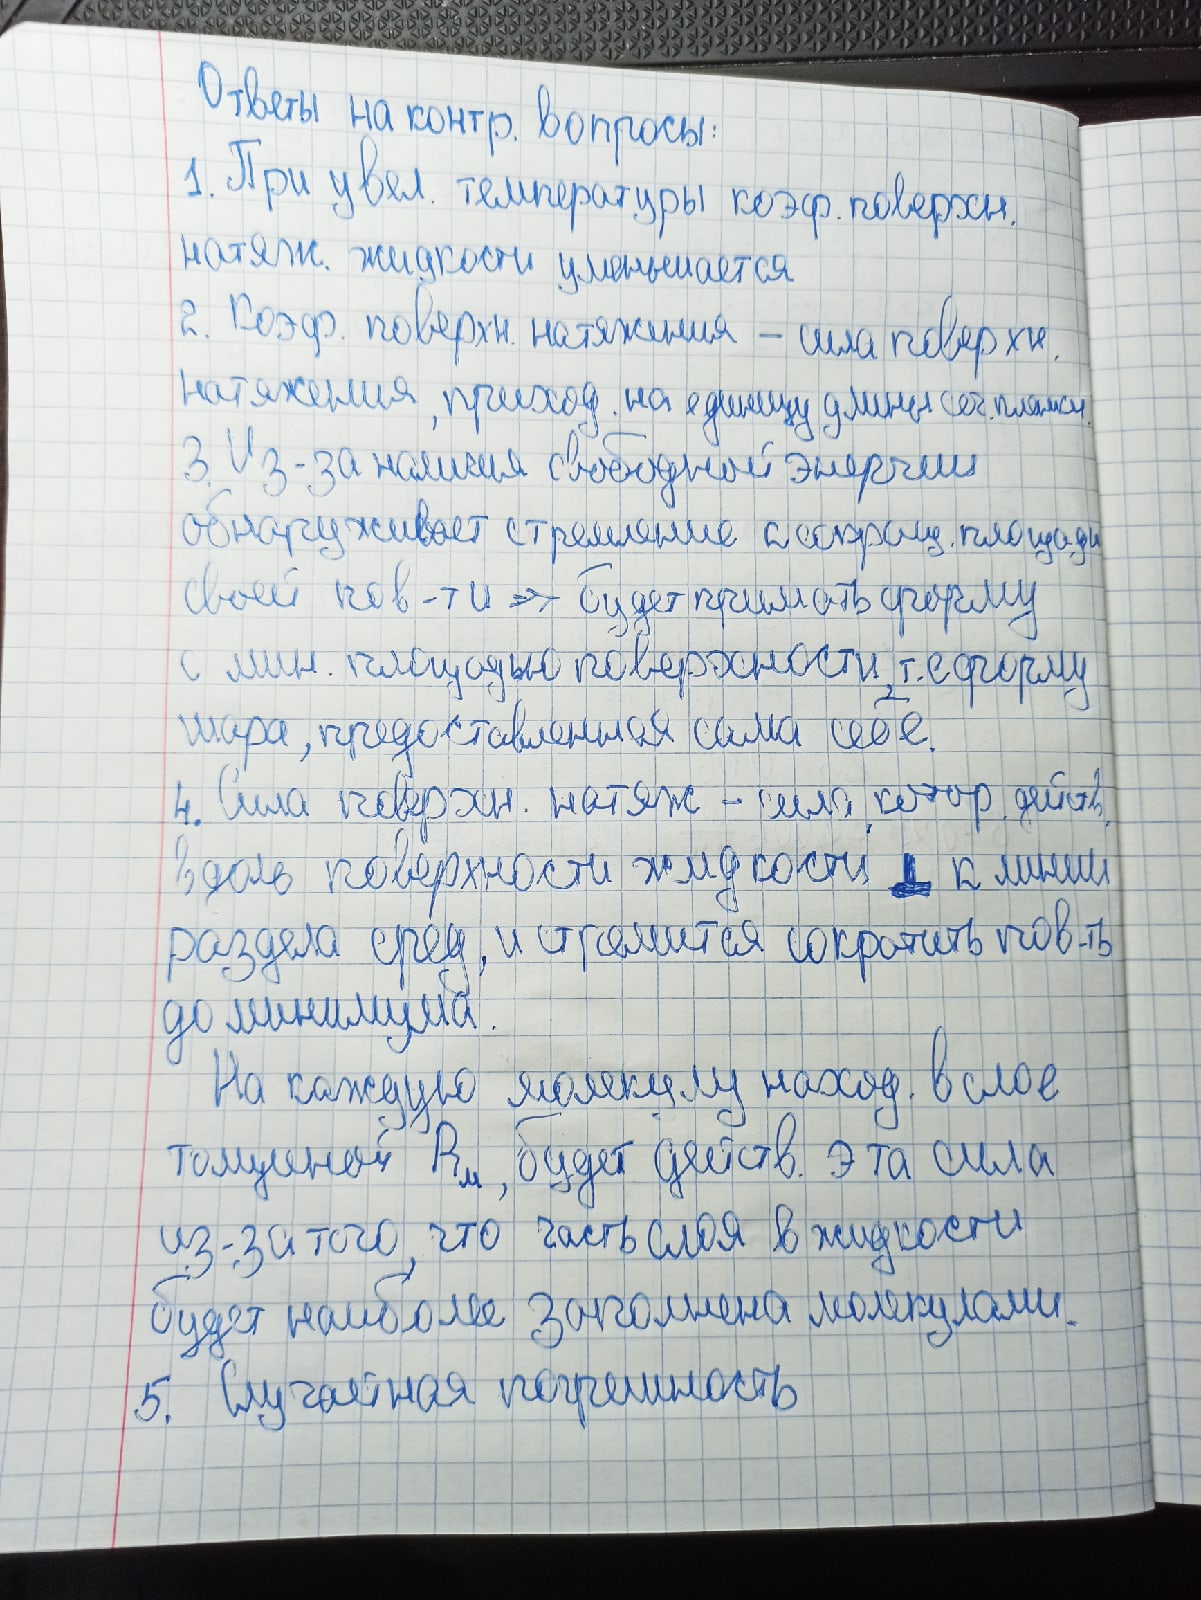 Ответы на контр. вопросы:
1. При увел. температуры коэф. поверхн.
натяж. жидкости уменьшается
2. Коэф. поверхн. натяжения – сила поверхн.
натяжения, приход. на единицу длины сеч. пленки.
3. Из-за наличия свободной энергии
обнаруживает стремление к сокращ. площади
своей пов-ти => будет принимать форму
с мин. площадью поверхности, т.е форму
шара, предоставленная сама себе.
4. Сила поверхн. натяж – сила, котор. действ.
вдоль поверхности жидкости ⊥ к линии
раздела сред, и стремится сократить пов-ть
до минимума.
На каждую молекулу наход. в слое
толщиной Rм, будет действ. эта сила
из-за того, что часть слоя в жидкости
будет наиболее заполнена молекулами.
5. Случайная погрешность